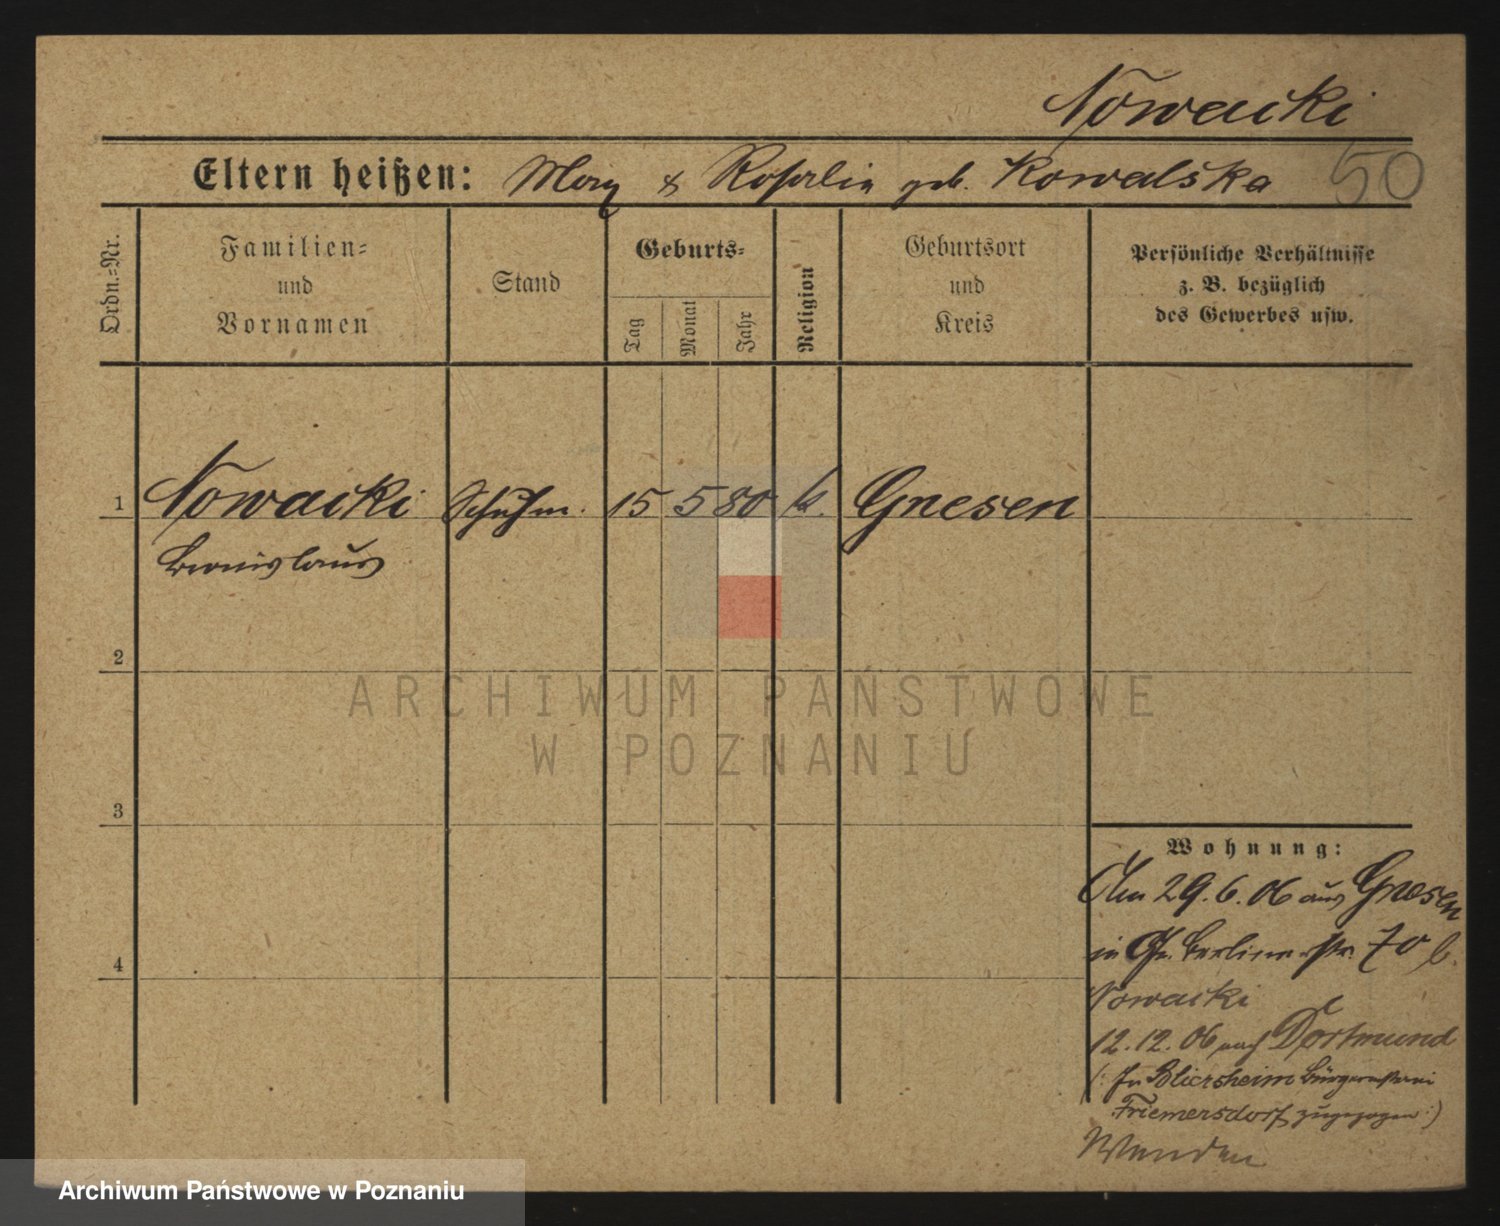 Nowacki
Eltern heißen: & Rosalia geb. Kowalska
50
Ordn.=Nr.
Familien=
und
Vornamen
Stand
Geburts=
Tag
Monat
Jahr
Religion
Geburtsort
und
Kreis
Persönliche Verhältnisse
z. B. bezüglich
des Gewerbes usw.
1
Nowacki
Schuhm.
15 5 80
k.
Gnesen
Bronislaus
2
ARCHIWUM PAŃSTWOWE
W POZNANIU
3
Wohnung:
Am 29.6.06 aus Gnesen
in Gr. Berlinerstr. 70 b.
Nowacki
4
12.12.06 nach Dortmund
(: In Bliersheim Bürgermeisterei
Friemersdorf zugezogen :)
Wenden
Archiwum Państwowe w Poznaniu